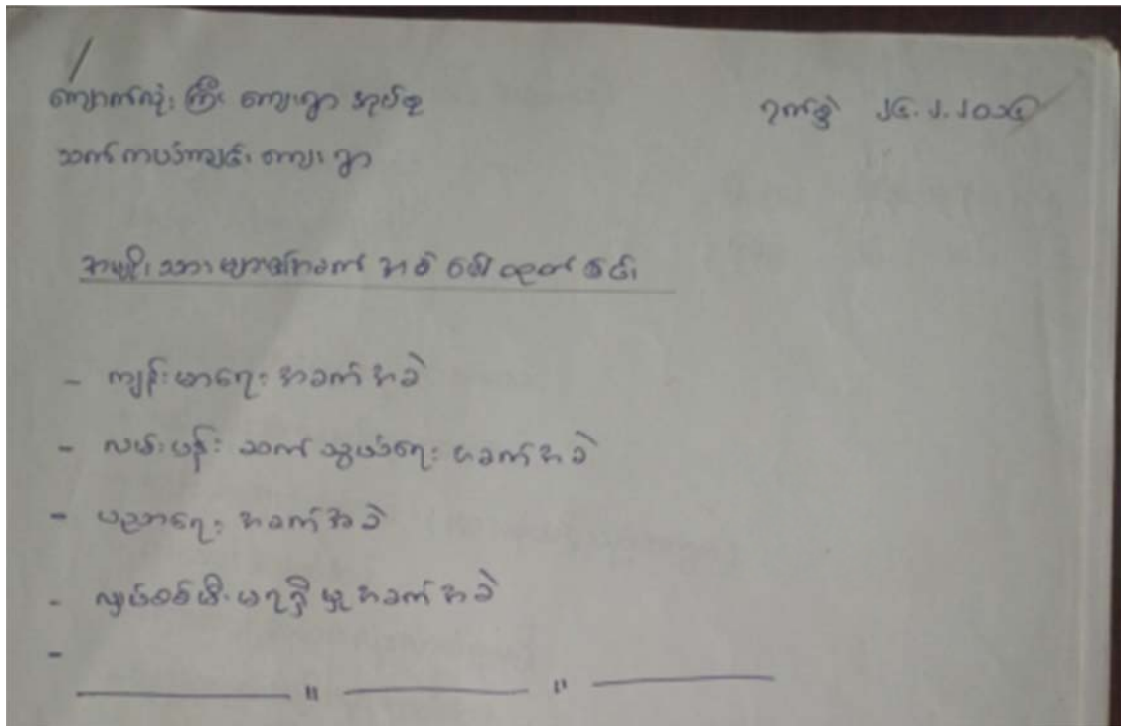 ကျောက်လုံးကြီး ကျေးရွာ အုပ်စု ရက်စွဲ ၂၄.၂.၂၀၁၄
သက်ကယ်ကျင်း ကျေးရွာ
အမျိုးသား အခက် အခဲ ဖေါ် ထုတ် ခြင်း
- ကျန်းမာရေး အခက် အခဲ
- လမ်းပန်း ဆက် သွယ်ရေး အခက် အခဲ
- ပညာရေး အခက် အခဲ
- လျှပ်စစ်မီး မရရှိ မှု အခက် အခဲ
-